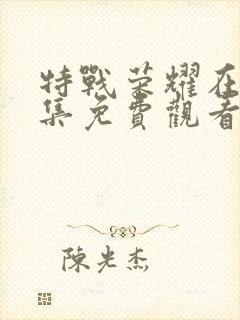 特戰榮耀在
集免費觀看
陳光杰